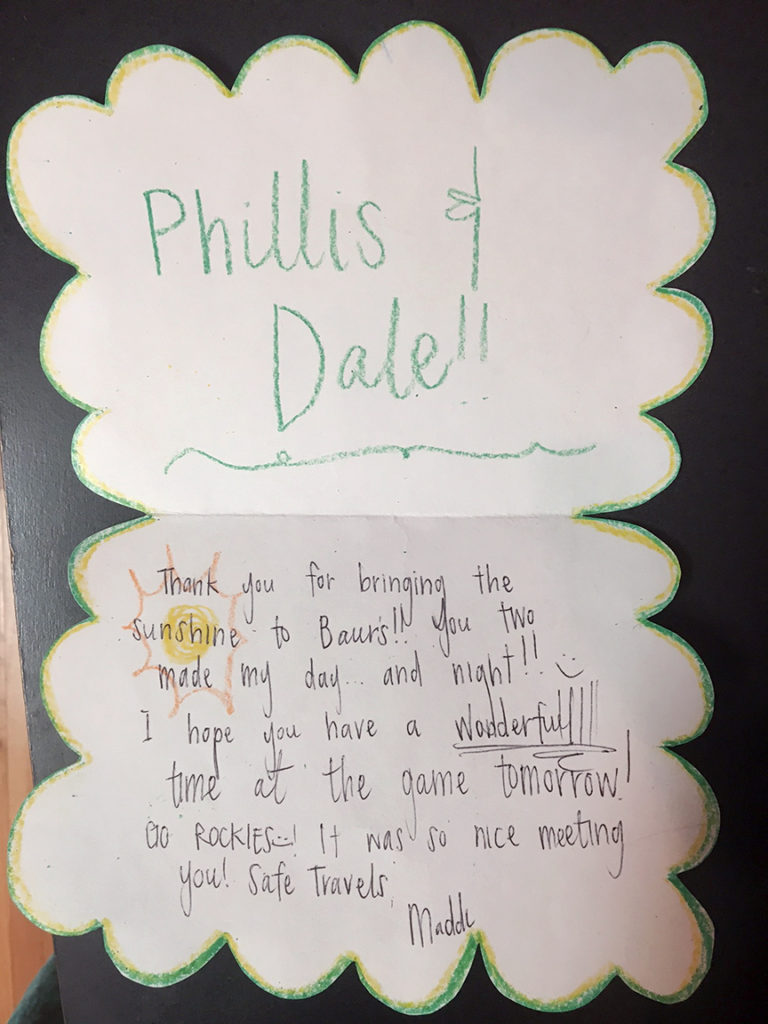 Phillis &
Dale!!
Thank you for bringing the
sunshine to Baur's!! You two
made my day... and night!! :)
I hope you have a wonderful!!!!
time at the game tomorrow!
GO ROCKIES :)! It was so nice meeting
you! Safe Travels,
Maddi